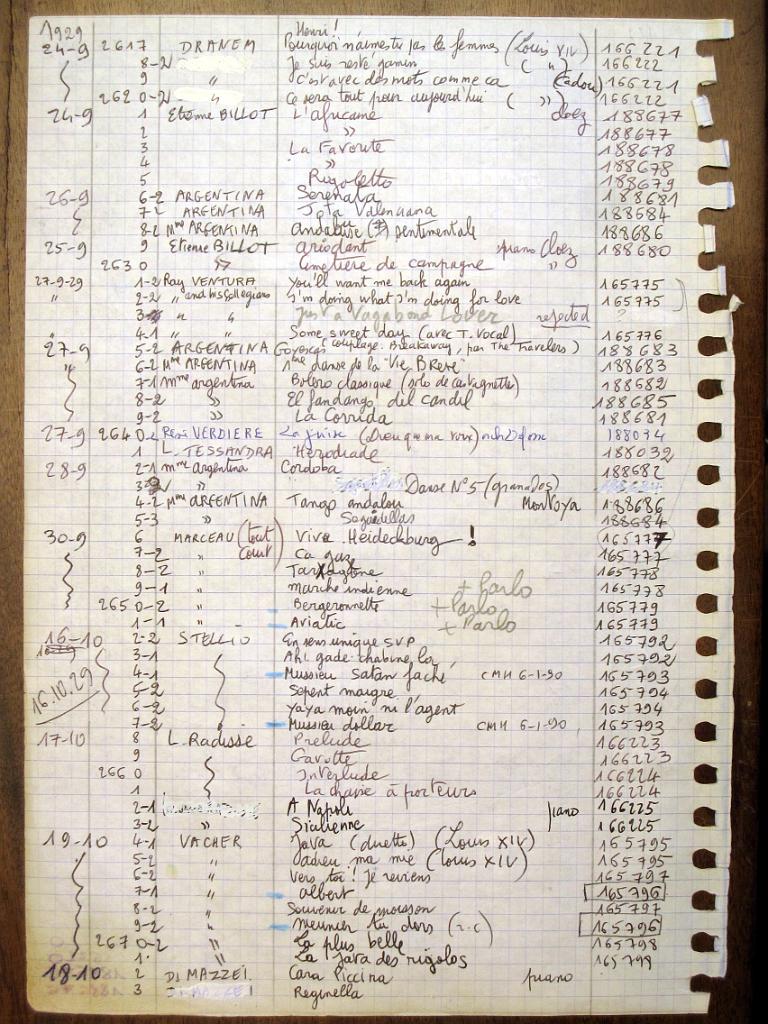 1929 Henri!
24-9 2617 DRANEM Pourquoi n'aimestu pas les femmes (Louis XIV) 166221
8-2 Je suis resté gamin ( " ) 166222
9 " C'est avec des mots comme ca (Cadou) 166221
2620-2 " Ce sera tout pour aujourd'hui ( " ) 166222
24-9 1 Etienne BILLOT L'africaine Cloez 188677
2 " 188677
3 La Favorite 188678
4 " 188678
5 Rigoletto 188679
26-9 6-2 ARGENTINA Serenata 188681
7-2 ARGENTINA Jota Valenciana 188684
8-2 Mme ARGENTINA andalouse sentimentale 188686
25-9 9 Etienne BILLOT ariodant piano Cloez 188680
2630 " Cimetière de campagne "
27-9-29 1-2 Ray VENTURA You'll want me back again 165775
" 2-2 " and his Collegians I'm doing what I'm doing for love 165775
3 " " Just a Vagabond Lover rejected ?
" 4-1 " " Some sweet day (avec T. Vocal) 165776
(couplage: Breakaway, par The Travelers)
27-9 5-2 ARGENTINA Goyescas 188683
" 6-2 Mme ARGENTINA 1ère danse de la "Vie Breve" 188683
7-1 mme argentina Bolero classique (solo de castagnettes) 188682
8-2 " El fandango del candil 188685
9-2 " La Corrida 188681
27-9 2640-2 René VERDIERE La juive (Dieu que ma voix) 188034
1 L. TESSANDRA Herodiade 188032
28-9 2-1 mme argentina Cordoba 188682
3 " Danse N°5 (granados)
4-2 Mme ARGENTINA Tango andalou Montoya 188686
5-3 " Seguedillas 188684
30-9 6 MARCEAU (tout court) Viva Heideckburg ! 165777
7-2 " Ca gaz 165777
8-2 " Tarragone 165778
9-1 " marche indienne + Parlo 165778
2650-2 " Bergeronnette + Parlo 165779
1-1 " Aviatic + Parlo 165779
16-10 2-2 STELLIO En sens unique S.V.P 165792
3-1 Ah! gade chabine la 165792
16.10.29 4-1 Mussieu Satan faché CMH 6-1-90 165793
5-2 Sepent maigre 165794
6-2 Yaya moin ni l'agent 165794
7-2 Mussieu dollar CMH 6-1-90 165793
17-10 8 L. Radisse Prelude 166223
9 Gavotte 166223
2660 Interlude 166224
1 La chaise à porteurs 166224
2-1 A Napoli piano 166225
3-2 " Sicilienne 166225
19-10 4-1 VACHER Java (duetto) (Louis XIV) 165795
5-2 " J'adieu ma mie (Louis XIV) 165795
6-2 " Vers toi! Je reviens 165797
7-1 " albert 165796
8-2 " Souvenir de moisson 165797
9-2 " meunier tu dors (r.c) 165796
2670-2 " La plus belle 165798
1 " La java des rigolos 165798
18-10 2 Di MAZZEI Cara Piccina piano
3 Reginella